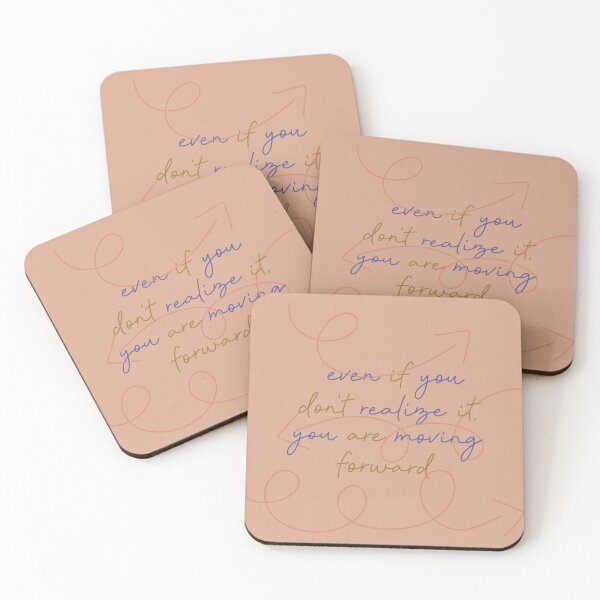 even if you
don't realize it
even if you
don't realize it,
you are moving
forward
even if you
don't realize it,
you are moving
forward
even if you
don't realize it,
you are moving
forward